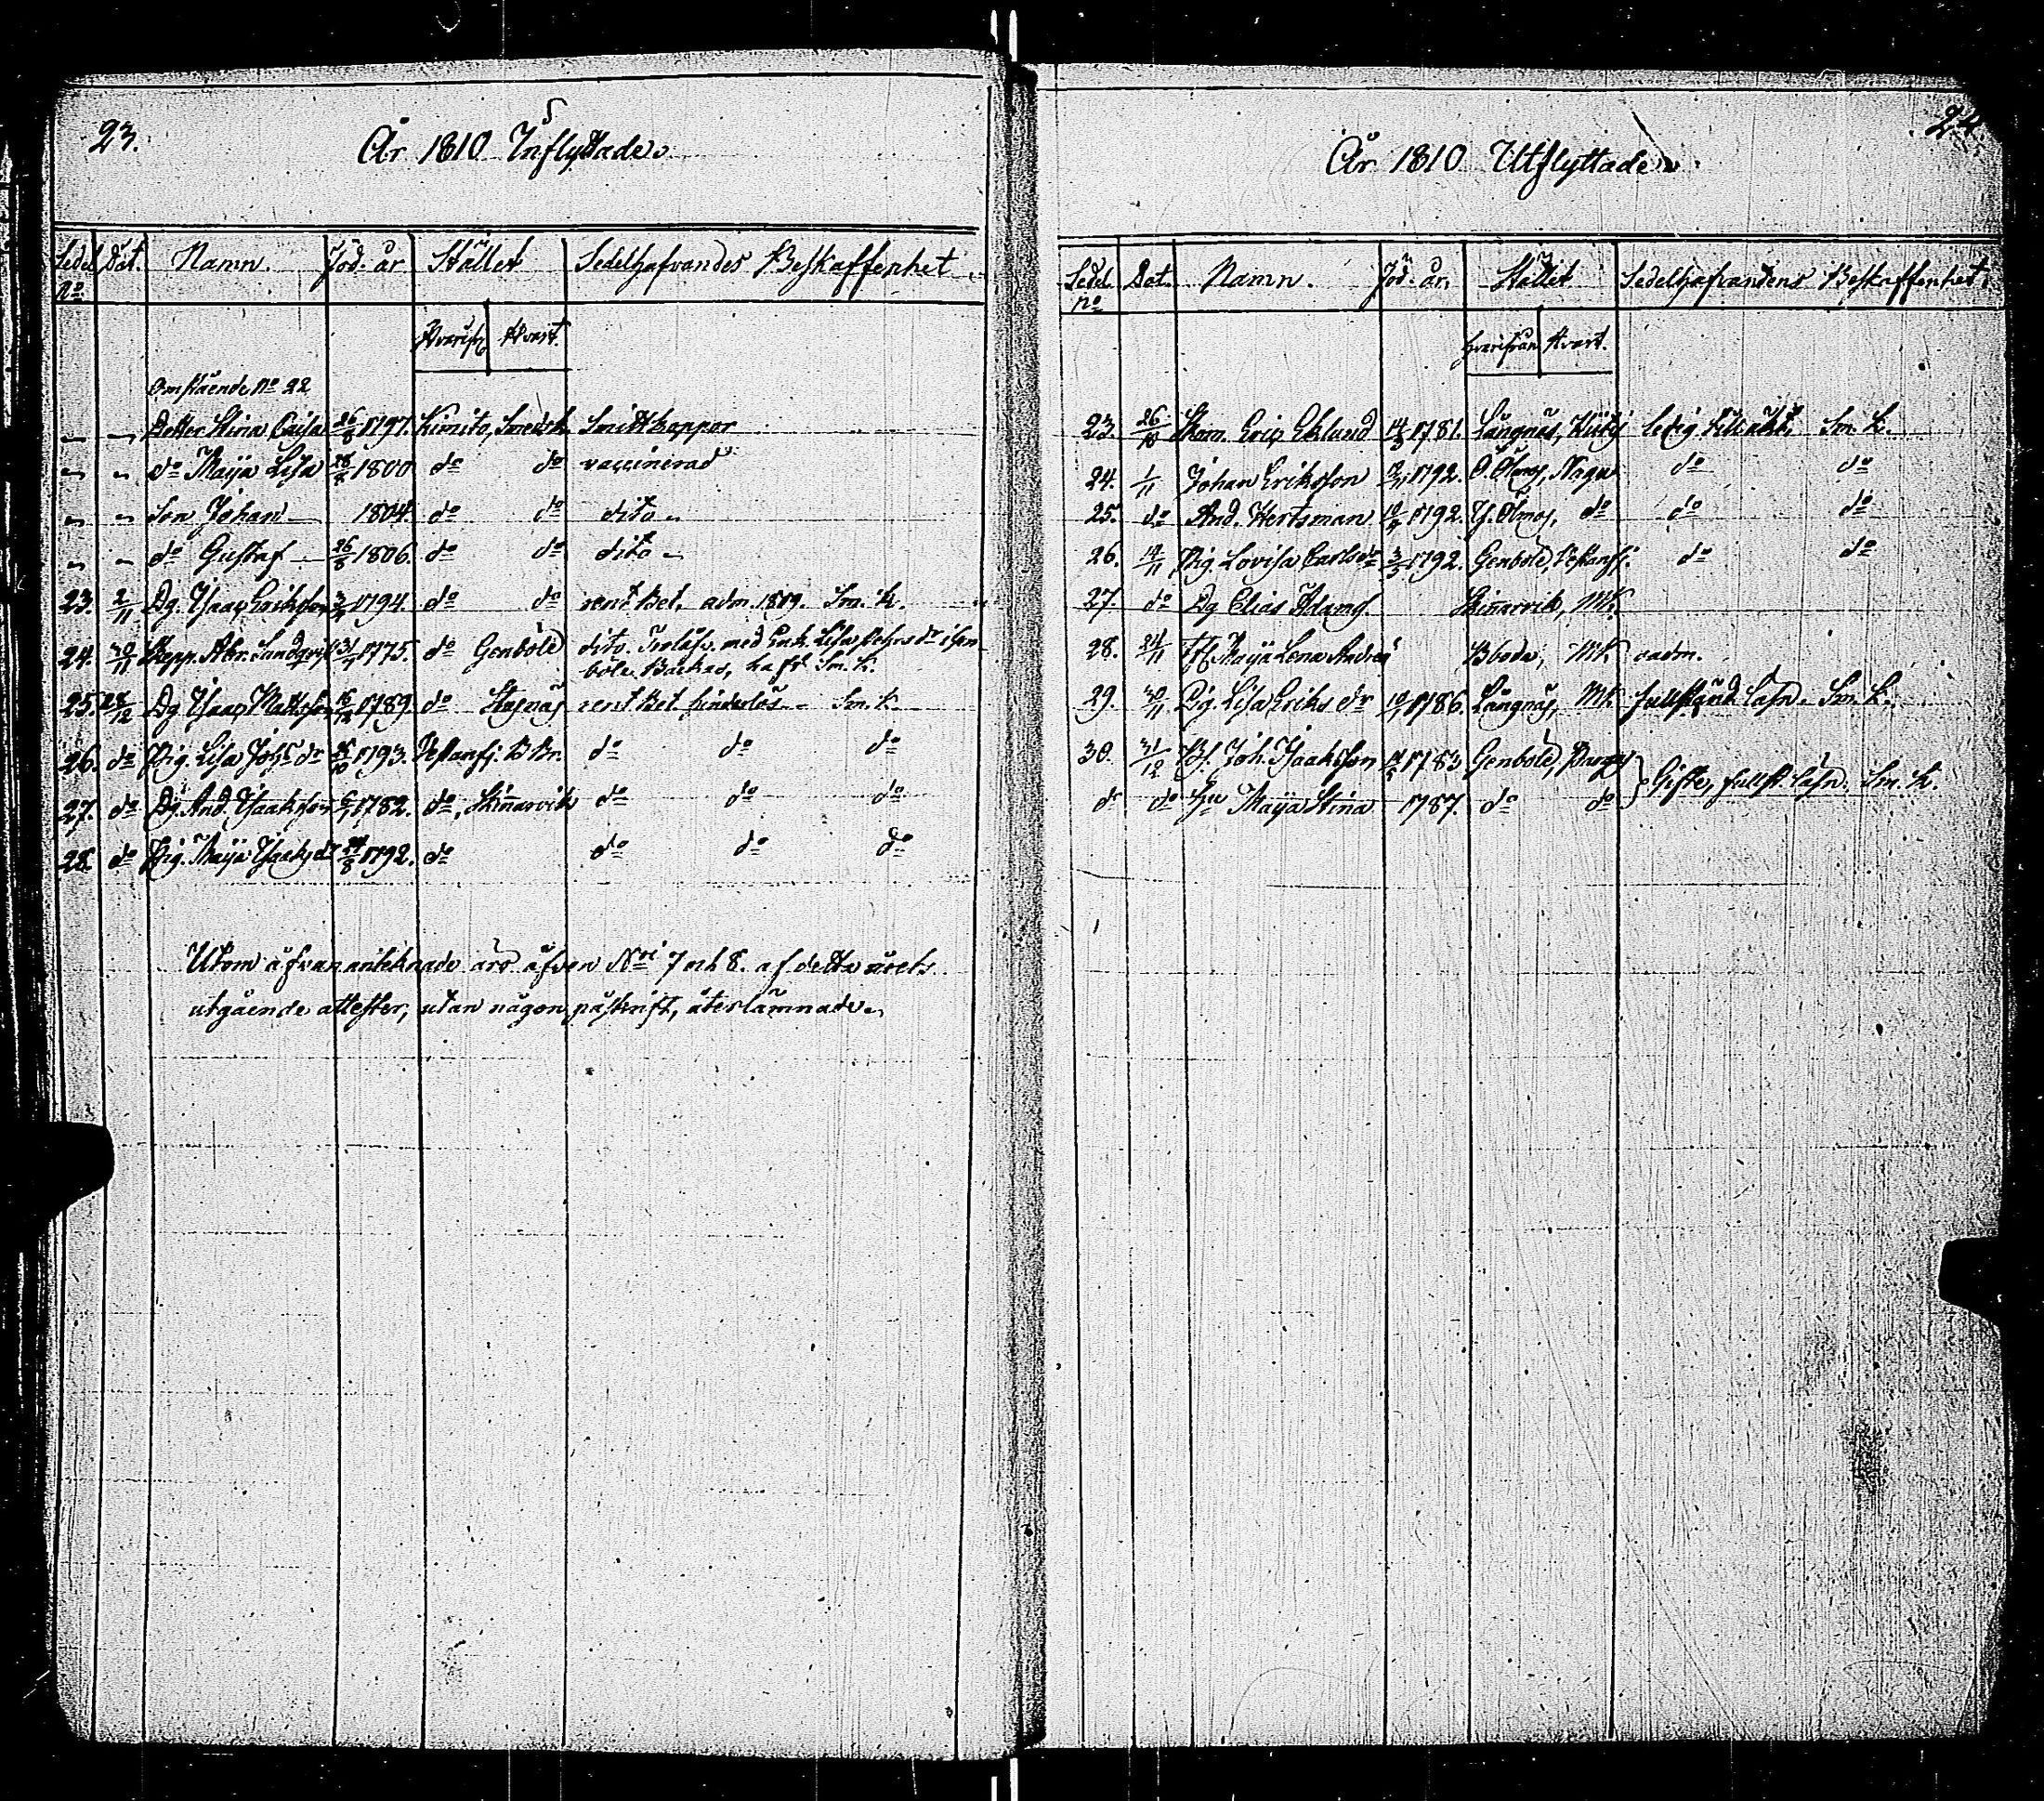 23.
År 1810 Inflyttade.
Sedel No Dat. Namn. Föd. år Stället Sedelhafvandes Beskaffenhet
Hvarifr. Hvart.
Omstående No 22
" " Dotter Stina Caisa 26/8 1797. Kimito, Smedsk. Smittkoppor
" " do Maija Lisa 28/8 1800 do do vaccinerad
" " Son Johan 1804. do do dito
" " do Gustaf 26/8 1806. do do dito
23. 2/11 Dg. Isaac Eriksson 1794. do do rent Bet. adm. 1809. Sm. K.
24. 30/11 Abr. Sundqvist 1775. do Genböle dito. med Enk. Lisa
böle Backas, haft Sm. K.
25. 28/12 Dg Isaac Mattsson 1789 do Stagnäs rent Bet. hinderlös Sm. K.
26. do Pig. Lisa Johs dr 1793. Vestanfj. do do do
27. do Dg. And. Isaksson 1782. do, Skinarvik do do do
28. do Pig. Maija Isaks dr 24/8 1792. do do do do
Utom åfvananteknade äro äfven Nri 7 och 8. af detta årets
utgående attester, utan någon påskrift, återlämnade.
24
År 1810 Utflyttade.
Sedel no Dat. Namn. Föd. år. Stället Sedelhafvandens Beskaffenhet.
hvarifrån hvart.
23. 26/10 Skom. Eric Eklund 1781. Långnäs, ledig till äkt. Sm. K.
24. 1/11 Johan Eriksson 1792. Ö. Ölmos, Nagu do do
25. do And. Hertsman 1792. Y. Ölmos, do do do
26. 14/11 Pig. Lovisa Carlsdr 3/3 1792. Genböle, Vestanfj. do do
27. do Dg Elias Adamss. Skinarvik, MK
28. 24/11 Maija Lena Andreæ Böda, MK oadm.
29. 30/11 Pig. Lisa Eriks dr 1786. Långnäs, MK fullständ. läsn. Sm. K.
30. 31/12 Joh. Isaaksson 1783 Genböle, Pargas Gifte, fullst. läsn. Sm. K.
do do Hu Maija Stina 1787. do do